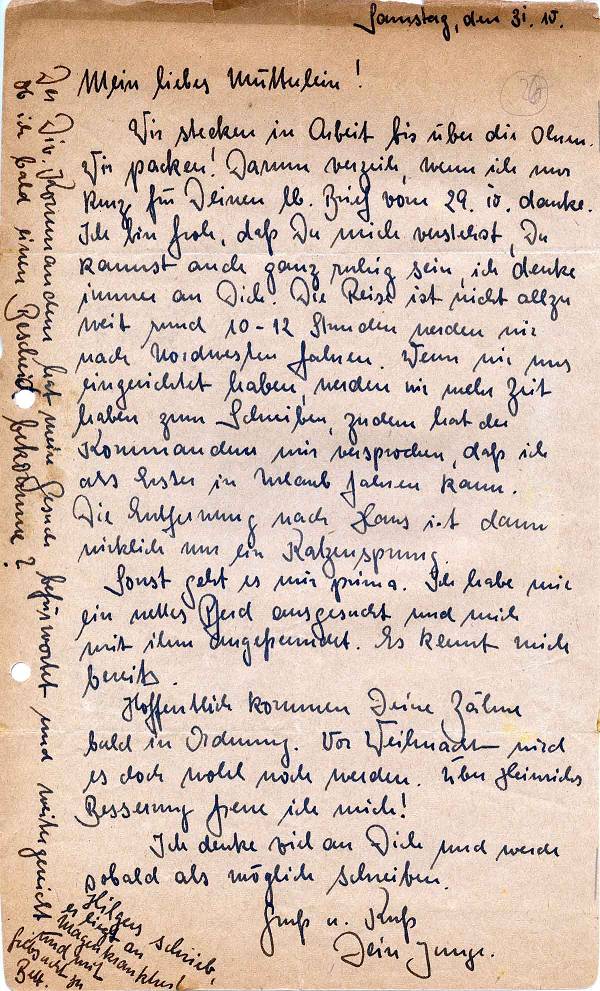 Samstag, den 31. 10.
Mein liebes Mütterlein!
Wir stecken in Arbeit bis über die Ohren.
Wir packen! Darum verzeih, wenn ich nur
kurz für Deinen lb. Brief vom 29. 10. danke.
Ich bin froh, daß Du mich verstehst, Du
kannst auch ganz ruhig sein, ich denke
immer an Dich. Die Reise ist nicht allzu
weit rund 10-12 Stunden werden wir
nach Nordwesten fahren. Wenn wir uns
eingerichtet haben, werden wir mehr Zeit
haben zum Schreiben, zudem hat der
Kommandeur mir versprochen, daß ich
als Erster in Urlaub fahren kann.
Die Entfernung nach Haus ist dann
wirklich nur ein Katzensprung.
Sonst geht es mir prima. Ich habe mir
ein nettes Pferd ausgesucht und mich
mit ihm angefreundet. Es kennt mich
bereits.
Hoffentlich kommen Deine Zähne
bald in Ordnung. Vor Weihnachten wird
es doch wohl noch werden. Über Heinrichs
Besserung freue ich mich!
Ich denke viel an Dich und werde
sobald als möglich schreiben.
Gruß u. Kuß
Dein Junge.
Der Div. Kommandeur hat mein Gesuch befürwortet und weitergereicht
ob ich bald einen Bescheid bekomme?
Hilgers schrieb,
er liegt an
Magenkrankheit
und mit
Gelbsucht zu
Bett.